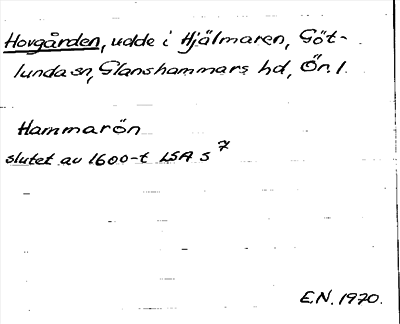 Hovgården, udde i Hjälmaren, Göt-
lunda sn, Glanshammars hd, Ör. l.
Hammarön
slutet av 1600-t LSA S 7
E.N. 1970.